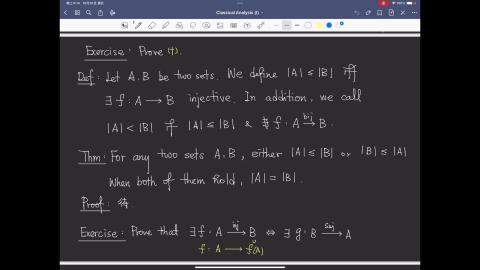 Classical Analysis (I)
Exercise : Prove (†).
Def : Let A, B be two sets. We define |A| ≤ |B| iff
∃ f : A → B injective. In addition, we call
|A| < |B| if |A| ≤ |B| & ∄ f : A bij→ B.
Thm : For any two sets A, B, either |A| ≤ |B| or |B| ≤ |A|
When both of them hold, |A| = |B|.
Proof : 待.
Exercise : Prove that ∃ f : A inj→ B ⇔ ∃ g : B surj→ A
f : A → f(A)